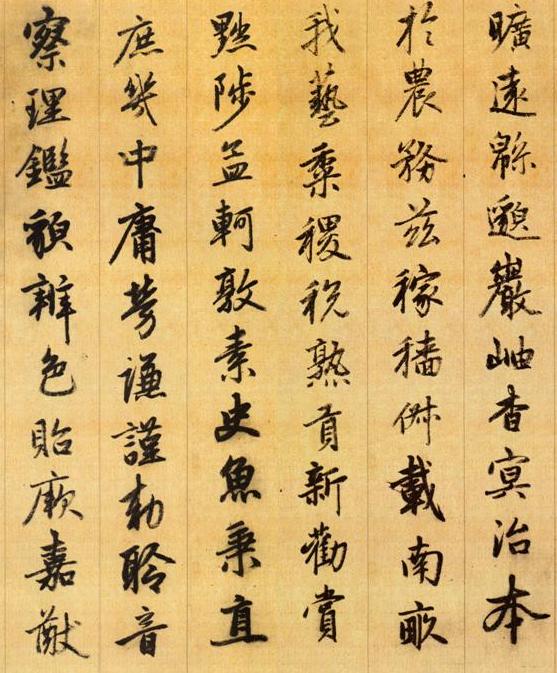 曠遠緜邈巖岫杳冥治本
於農務茲稼穡俶載南畝
我藝黍稷稅熟貢新勸賞
黜陟孟軻敦素史魚秉直
庶幾中庸勞謙謹勅聆音
察理鑑貌辨色貽厥嘉猷